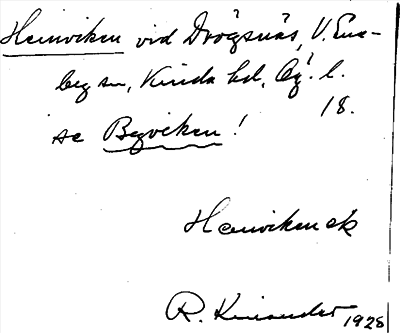 Hamviken vid Drögsnäs, V. Ene-
by sn, Kinda hd, Ög. l.
18.
se Byviken!
Hamviken ek
R. Kinander 1928